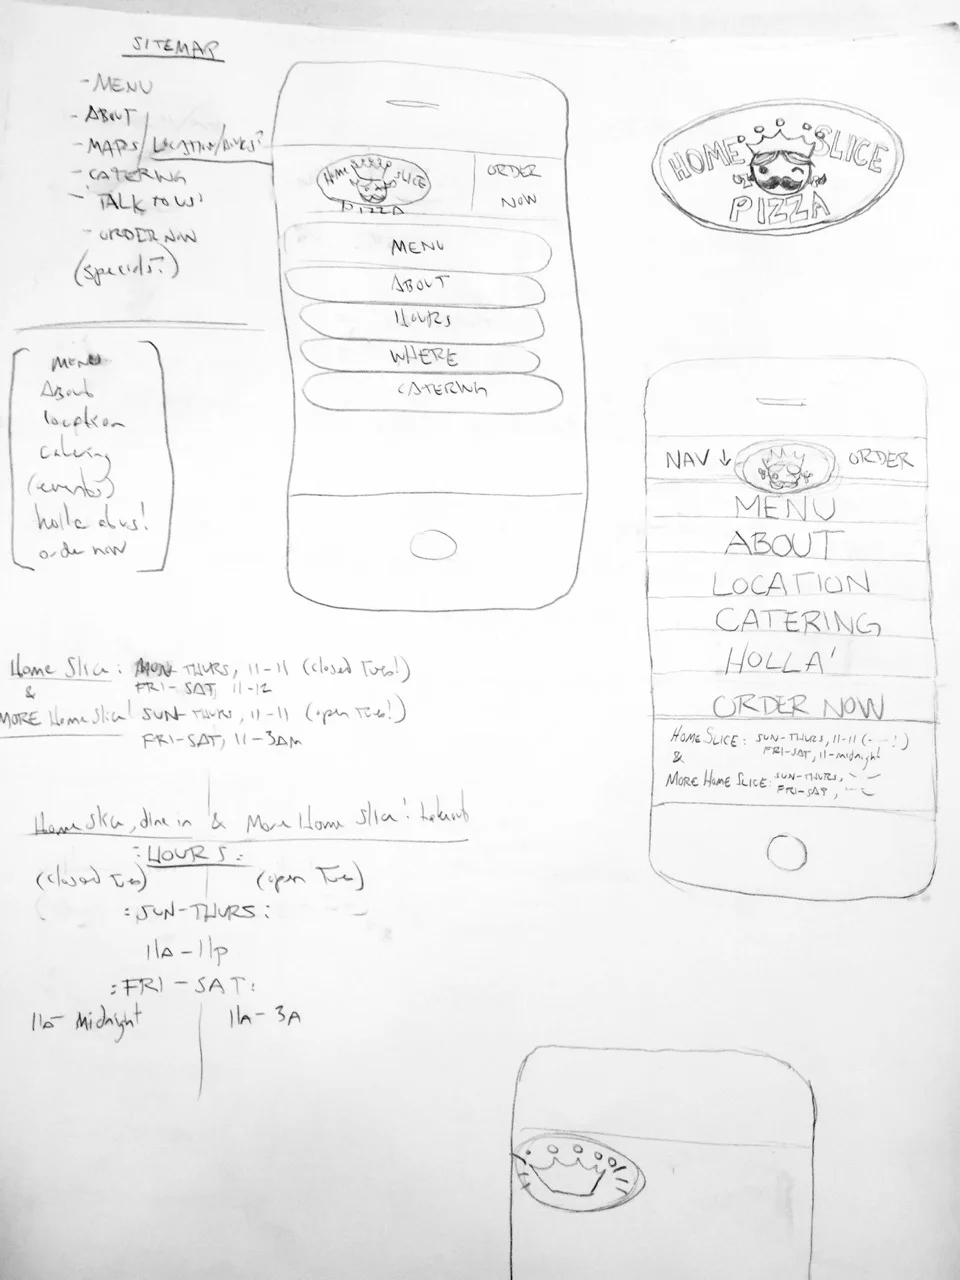 SITEMAP
- MENU
- ABOUT
- MAPS/LOCATION/HOURS?
- CATERING
- "TALK TO US"
- ORDER NOW
(specials?)
MENU
About
location
catering
(events)
holla at us!
order now
HOME SLICE
PIZZA
ORDER
NOW
MENU
ABOUT
HOURS
WHERE
CATERING
HOME SLICE
PIZZA
NAV ↓
ORDER
MENU
ABOUT
LOCATION
CATERING
HOLLA'
ORDER NOW
HOME SLICE: SUN-THURS, 11-11 ( - - ! )
FRI-SAT, 11-midnight
&
MORE HOME SLICE: SUN-THURS,
FRI-SAT,
Home Slice: MON-THURS, 11-11 (closed Tues!)
& FRI-SAT, 11-12
MORE Home Slice! SUN-THURS, 11-11 (open Tues!)
FRI-SAT, 11-3AM
Home Slice, dine in & More Home Slice! takeout
:HOURS:
(closed Tues) (open Tues)
:SUN-THURS:
11A-11P
:FRI-SAT:
11A-Midnight 11A-3A